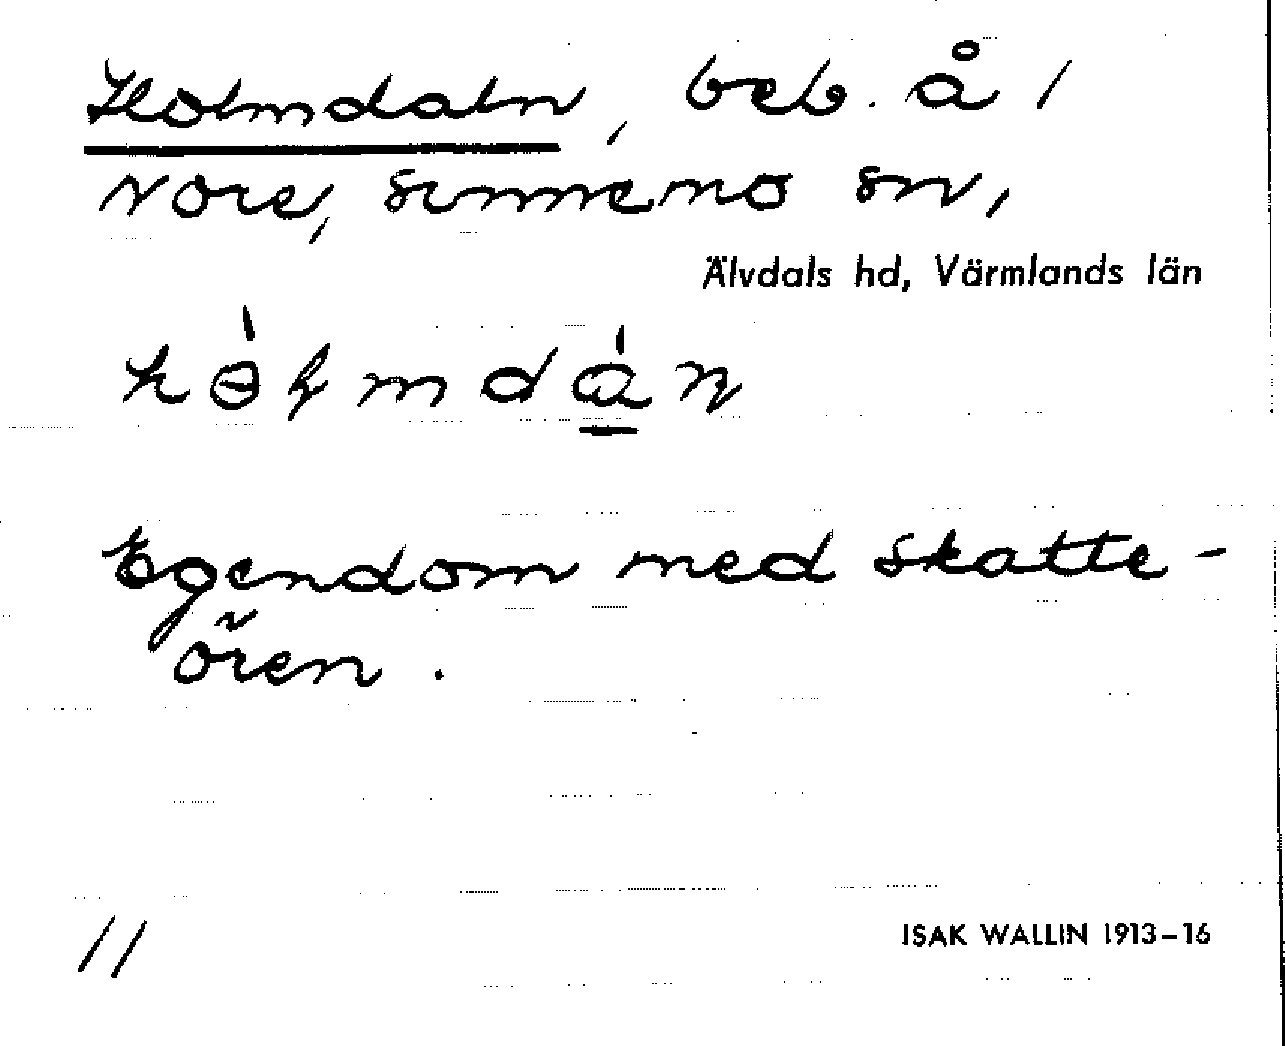 Holmdaln, beb. å 1
Nore, Sunnemo sn,
Älvdals hd, Värmlands län
Egendom med skatte-
ören.
11
ISAK WALLIN 1913-16